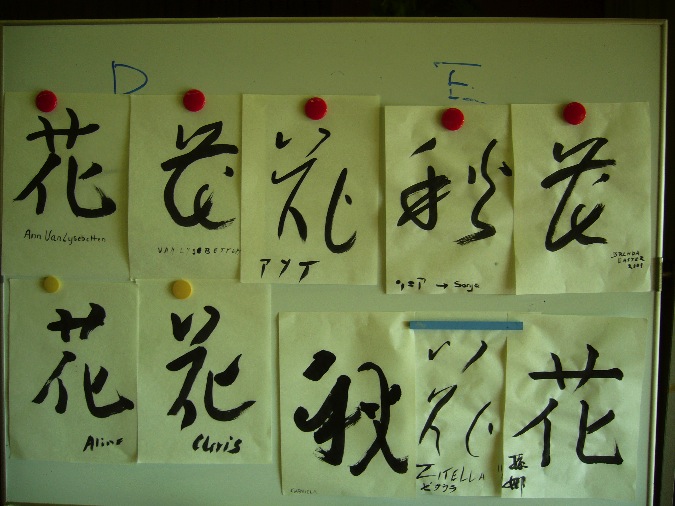 D
E
花
Ann VanLysebetten
花
VAN LYSEBETTEN
花
秋
ソニア → Sonja
花
BRENDA
EASTER
花
Aline
花
Chris
秋
花
ZITELLA
花